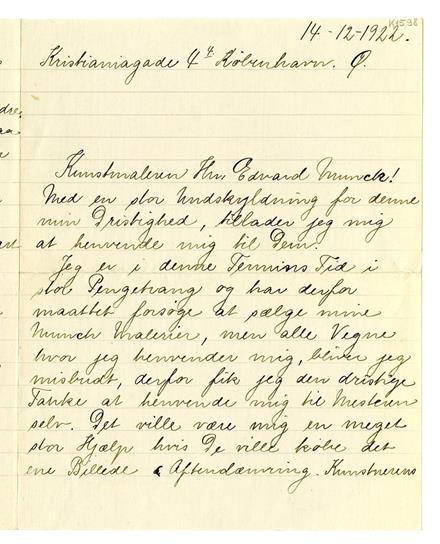 K4598
14-12-1922.
Kristianiagade 4 4. København. Ø.
Kunstmaleren Hr. Edvard Munck!
Med en stor Undskyldning for denne
min Dristighed, tillader jeg mig
at henvende mig til Dem.
Jeg er i denne Termins Tid i
stor Pengetrang og har derfor
maattet forsøge at sælge mine
Munch Malerier, men alle Vegne
hvor jeg henvender mig, bliver jeg
misbudt, derfor fik jeg den dristige
Tanke at henvende mig til Mesteren
selv. Det ville være mig en meget
stor Hjælp hvis De ville købe det
ene Billede Aftendæmring. Kunstnerens